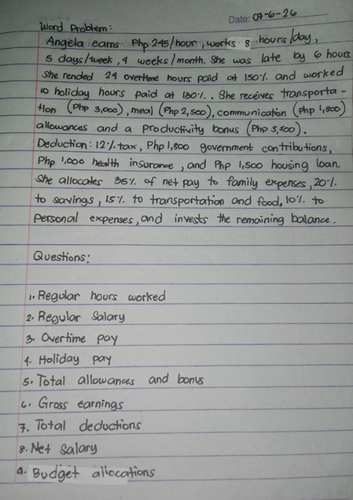 Date: 07-6-26
Word Problem:
Angela earns Php 245/hour, works 8 hours/day,
5 days/week, 4 weeks/month. She was late by 6 hours
She rended 24 overtime hours paid at 150% and worked
10 holiday hours paid at 130%. She receives transporta-
tion (Php 3,000), meal (Php 2,500), communication (Php 1,800)
allowances and a Productivity bonus (Php 5,500).
Deduction: 12% tax, Php 1,800 government contributions,
Php 1,000 health insurance, and Php 1,500 housing loan.
She allocates 35% of net pay to family expenses, 20%
to savings, 15% to transportation and food, 10% to
personal expenses, and invests the remaining balance.
Questions:
1. Regular hours worked
2. Regular Salary
3. Overtime pay
4. Holiday pay
5. Total allowances and bonus
6. Gross earnings
7. Total deductions
8. Net Salary
9. Budget allocations